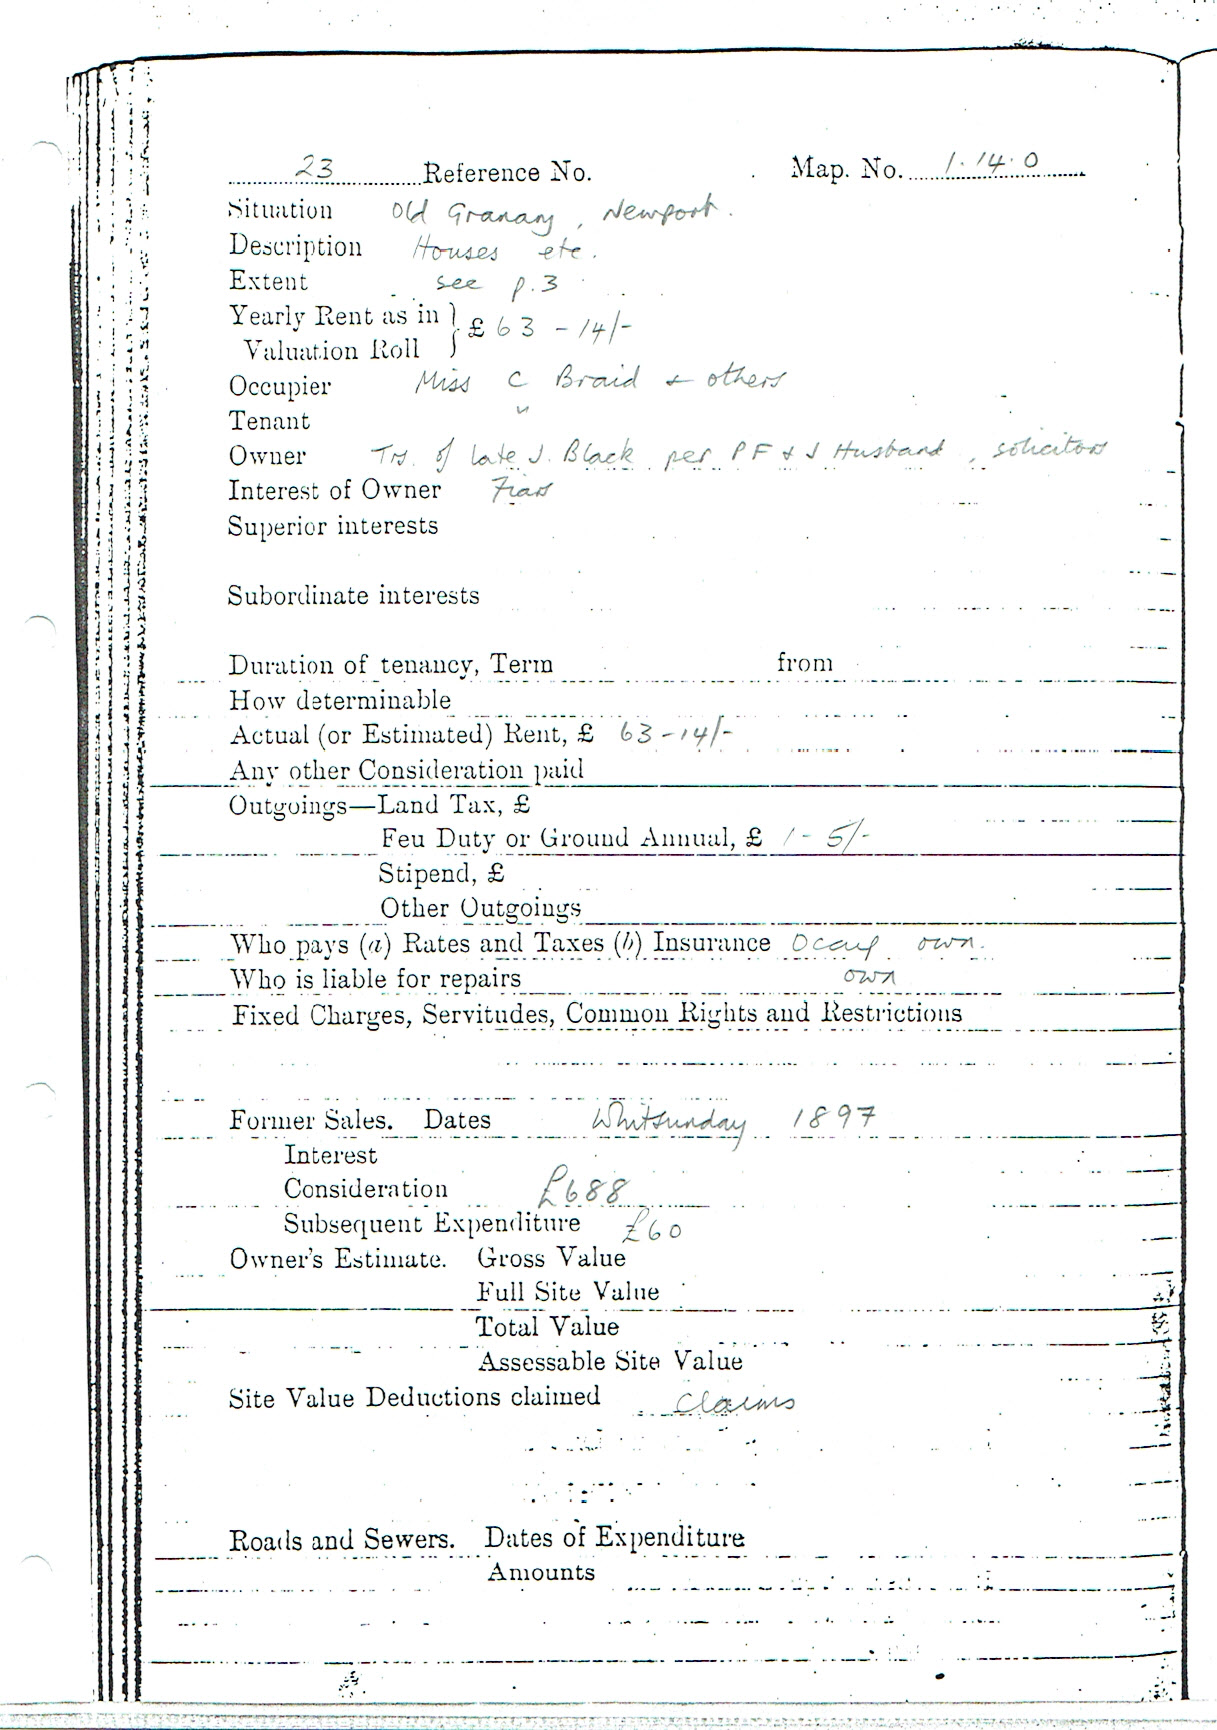 23 Reference No. Map. No. 1.14.0
Situation Old Granary, Newport.
Description Houses etc.
Extent see p.3
Yearly Rent as in
Valuation Roll £63-14/-
Occupier Miss C Braid + others
Tenant "
Owner Trs. of late J. Black per PF & J Husband, solicitors
Interest of Owner Fiars
Superior interests
Subordinate interests
Duration of tenancy, Term from
How determinable
Actual (or Estimated) Rent, £ 63-14/-
Any other Consideration paid
Outgoings—Land Tax, £
Feu Duty or Ground Annual, £ 1-5/-
Stipend, £
Other Outgoings
Who pays (a) Rates and Taxes (b) Insurance Occup own.
Who is liable for repairs own
Fixed Charges, Servitudes, Common Rights and Restrictions
Former Sales. Dates Whitsunday 1897
Interest
Consideration £688
Subsequent Expenditure £60
Owner's Estimate. Gross Value
Full Site Value
Total Value
Assessable Site Value
Site Value Deductions claimed Claims
Roads and Sewers. Dates of Expenditure
Amounts